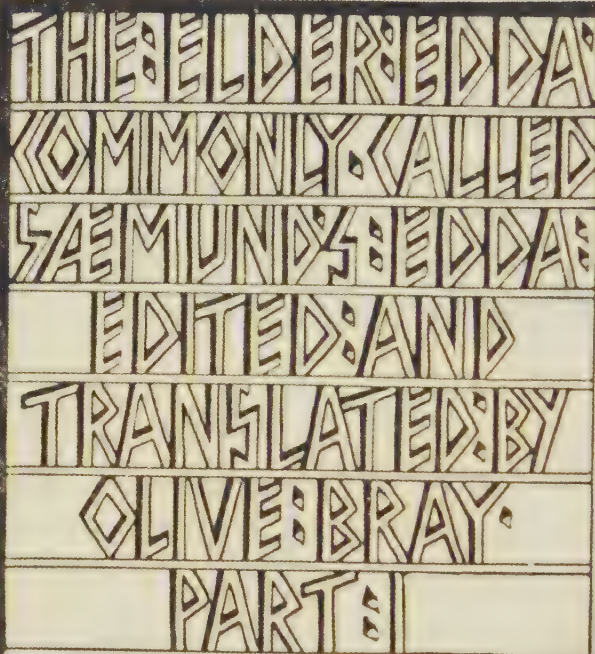 THE:ELDER:EDDA:
COMMONLY·CALLED
SÆMUND'S:EDDA:
EDITED:AND
TRANSLATED:BY
OLIVE:BRAY·
PART:I